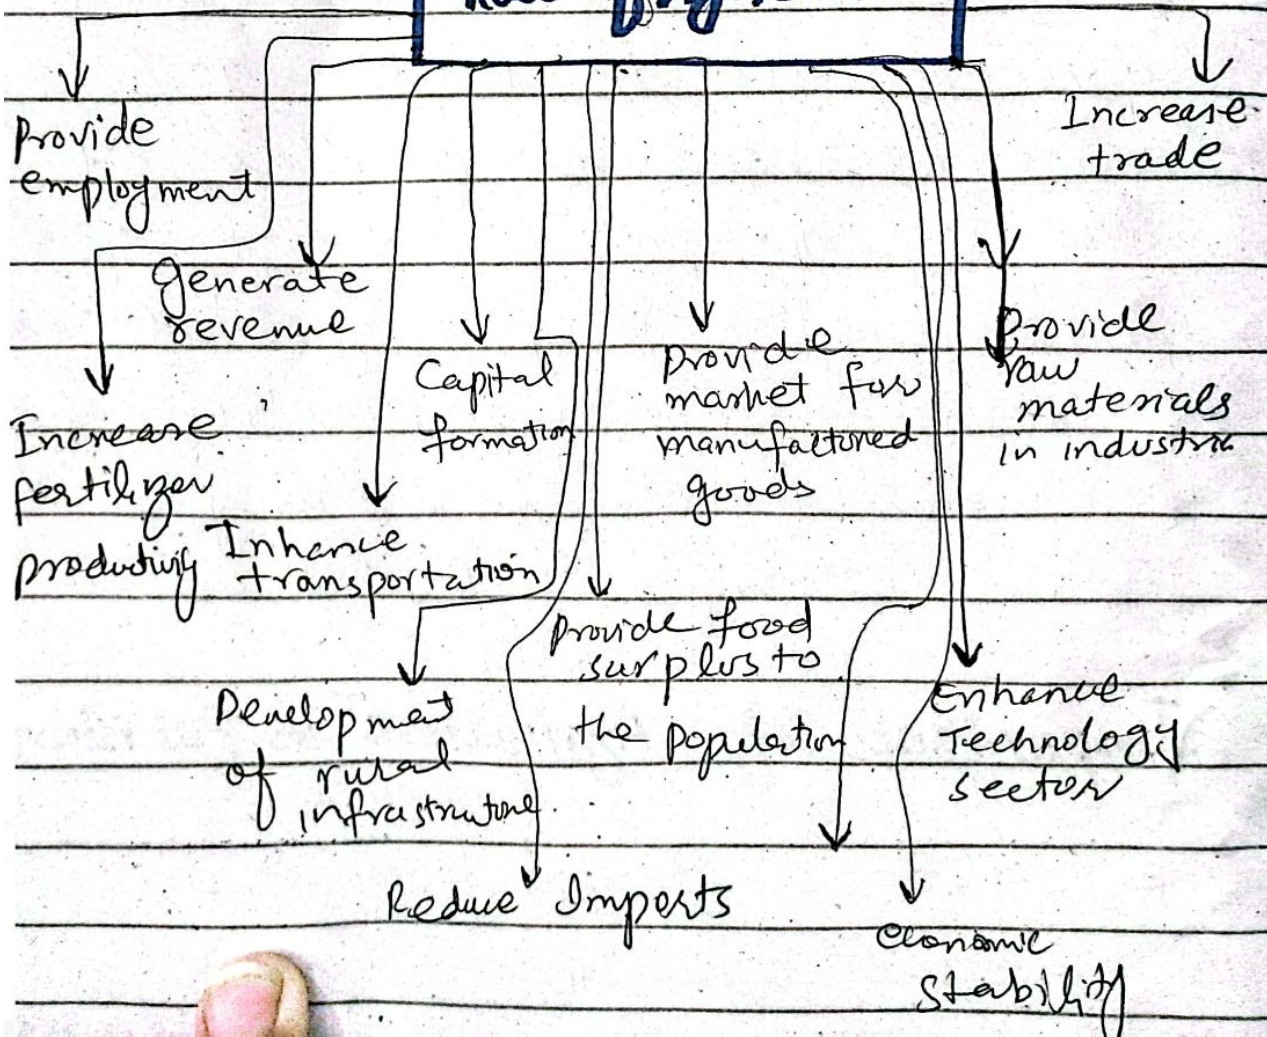 Provide
employment
Increase
trade
Generate
revenue
Provide
raw
materials
in industrie
Capital
formation
Provide
market for
manufactured
goods
Increase
fertilizer
productivity
Inhance
transportation
Provide food
surplus to
the population
Development
of rural
infrastructure
Enhance
Technology
sector
Reduce Imports
economic
stability